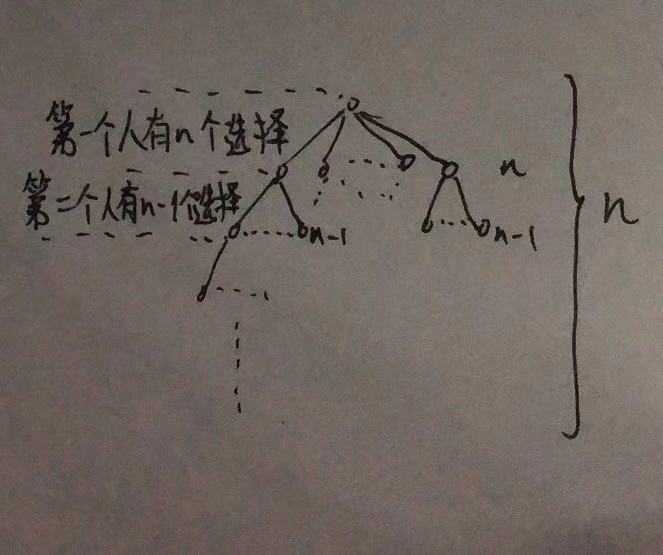 第一个人有n个选择
n
第二个人有n-1个选择
n-1
n-1
n